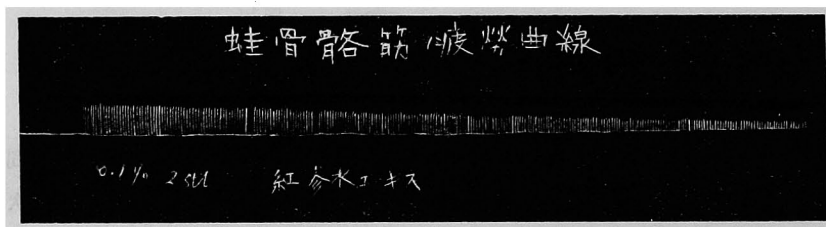 蛙骨骼筋疲勞曲線
0.1% 2 std 紅參水エキス